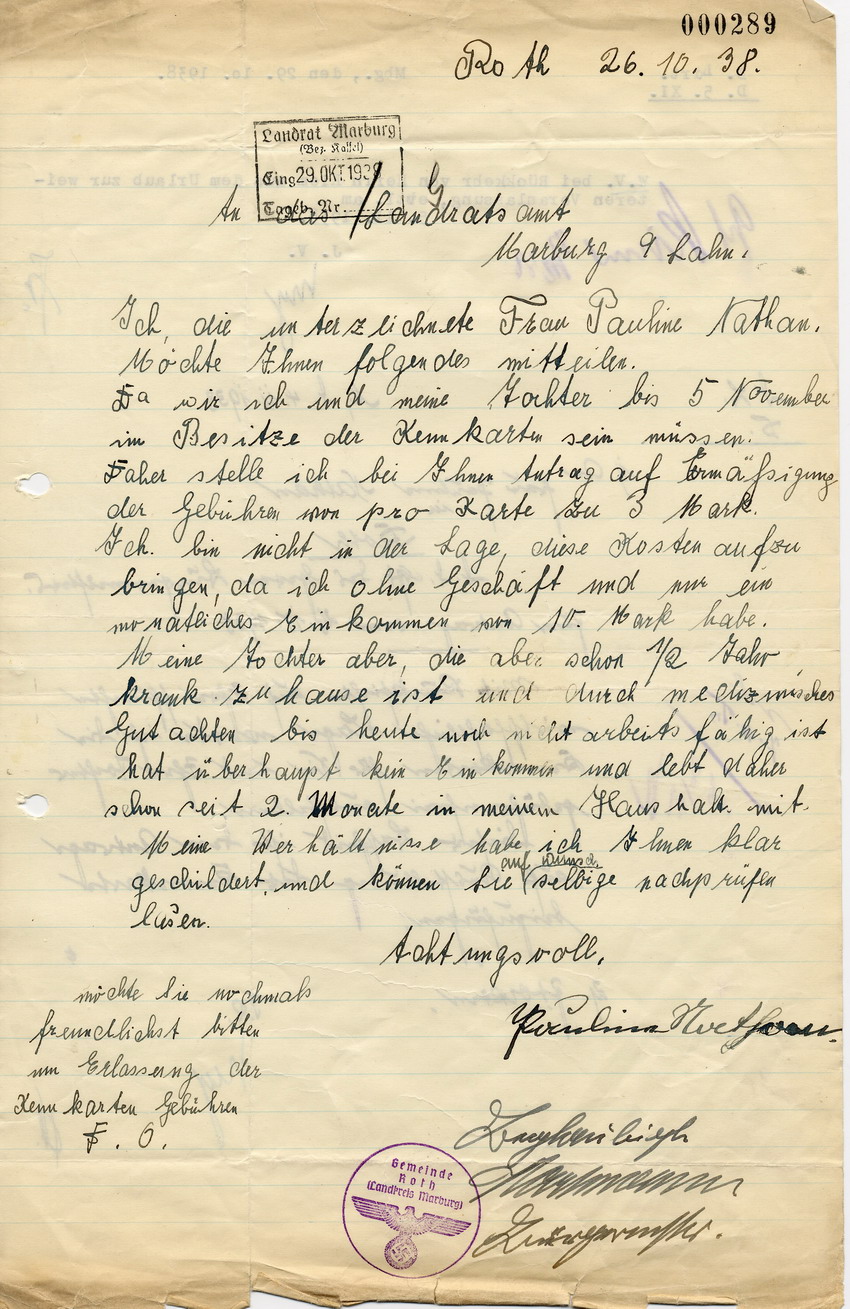 000289
Roth 26.10.38.
Landrat Marburg
(Bez. Kassel)
Eing 29.OKT.1938
Tageb. Nr.
An das Landratsamt
Marburg a Lahn.
Ich, die unterzeichnete Frau Pauline Nathan.
Möchte Ihnen folgendes mitteilen.
Da wir ich und meine Tochter bis 5 November
im Besitze der Kennkarten sein müssen.
Daher stelle ich bei Ihnen Antrag auf Ermäßigung
der Gebühren von pro Karte zu 3 Mark.
Ich. bin nicht in der Lage, diese Kosten aufzu
bringen, da ich ohne Geschäft und nur ein
monatliches Einkommen von 10. Mark habe.
Meine Tochter aber, die aber schon 1/2 Jahr
krank zuhause ist und durch medizinisches
Gutachten bis heute noch nicht arbeitsfähig ist
hat überhaupt kein Einkommen und lebt daher
schon seit 2. Monate in meinem Haushalt mit.
Meine Verhältnisse habe ich Ihnen klar
auf wunsch.
geschildert, und können Sie selbige nachprüfen
lasen.
Achtungsvoll.
möchte Sie nochmals
freundlichst bitten
um Erlassung der
Kennkarten Gebühren
D. O.
Pauline Nathan.
Bürgermeister.
Gemeinde
Roth
(Landkreis Marburg)